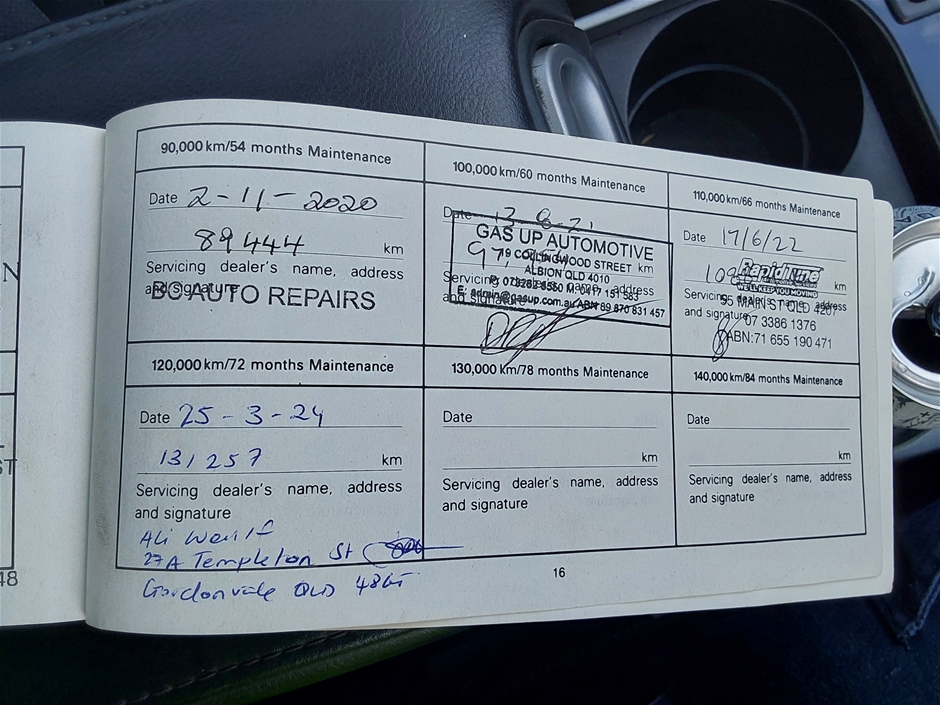 90,000 km/54 months Maintenance
Date 2-11-2020
89444 km
Servicing dealer's name, address
and signature
BC AUTO REPAIRS
100,000 km/60 months Maintenance
Date
97, km
Servicing name, address
and signature
GAS UP AUTOMOTIVE
79 COLLINGWOOD STREET
ALBION QLD 4010
P: 07 3262 8550 M: 0417 151 583
E: admin@gasup.com.au ABN 69 870 831 457
110,000 km/66 months Maintenance
Date 17/6/22
km
Servicing dealer's name, address
and signature
RapidTune
WE'LL KEEP YOU MOVING
55 MAIN ST QLD 4207
07 3386 1376
ABN:71 655 190 471
120,000 km/72 months Maintenance
Date 25-3-24
131257 km
Servicing dealer's name, address
and signature
Ali
27A Templeton St
Gordonvale QLD
130,000 km/78 months Maintenance
Date
km
Servicing dealer's name, address
and signature
140,000 km/84 months Maintenance
Date
km
Servicing dealer's name, address
and signature
16